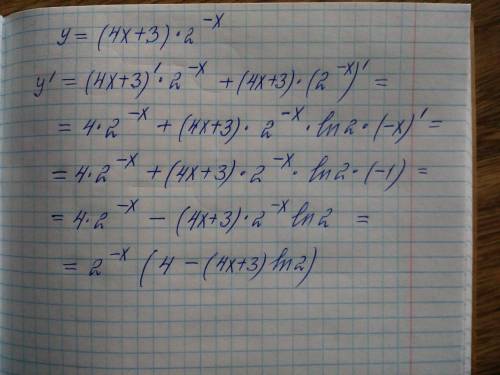 y = (4x+3)·2^{-x}
y' = (4x+3)'·2^{-x} + (4x+3)·(2^{-x})' =
= 4·2^{-x} + (4x+3)·2^{-x}·ln2·(-x)' =
= 4·2^{-x} + (4x+3)·2^{-x}·ln2·(-1) =
= 4·2^{-x} - (4x+3)·2^{-x} ln2 =
= 2^{-x} (4 - (4x+3) ln2)